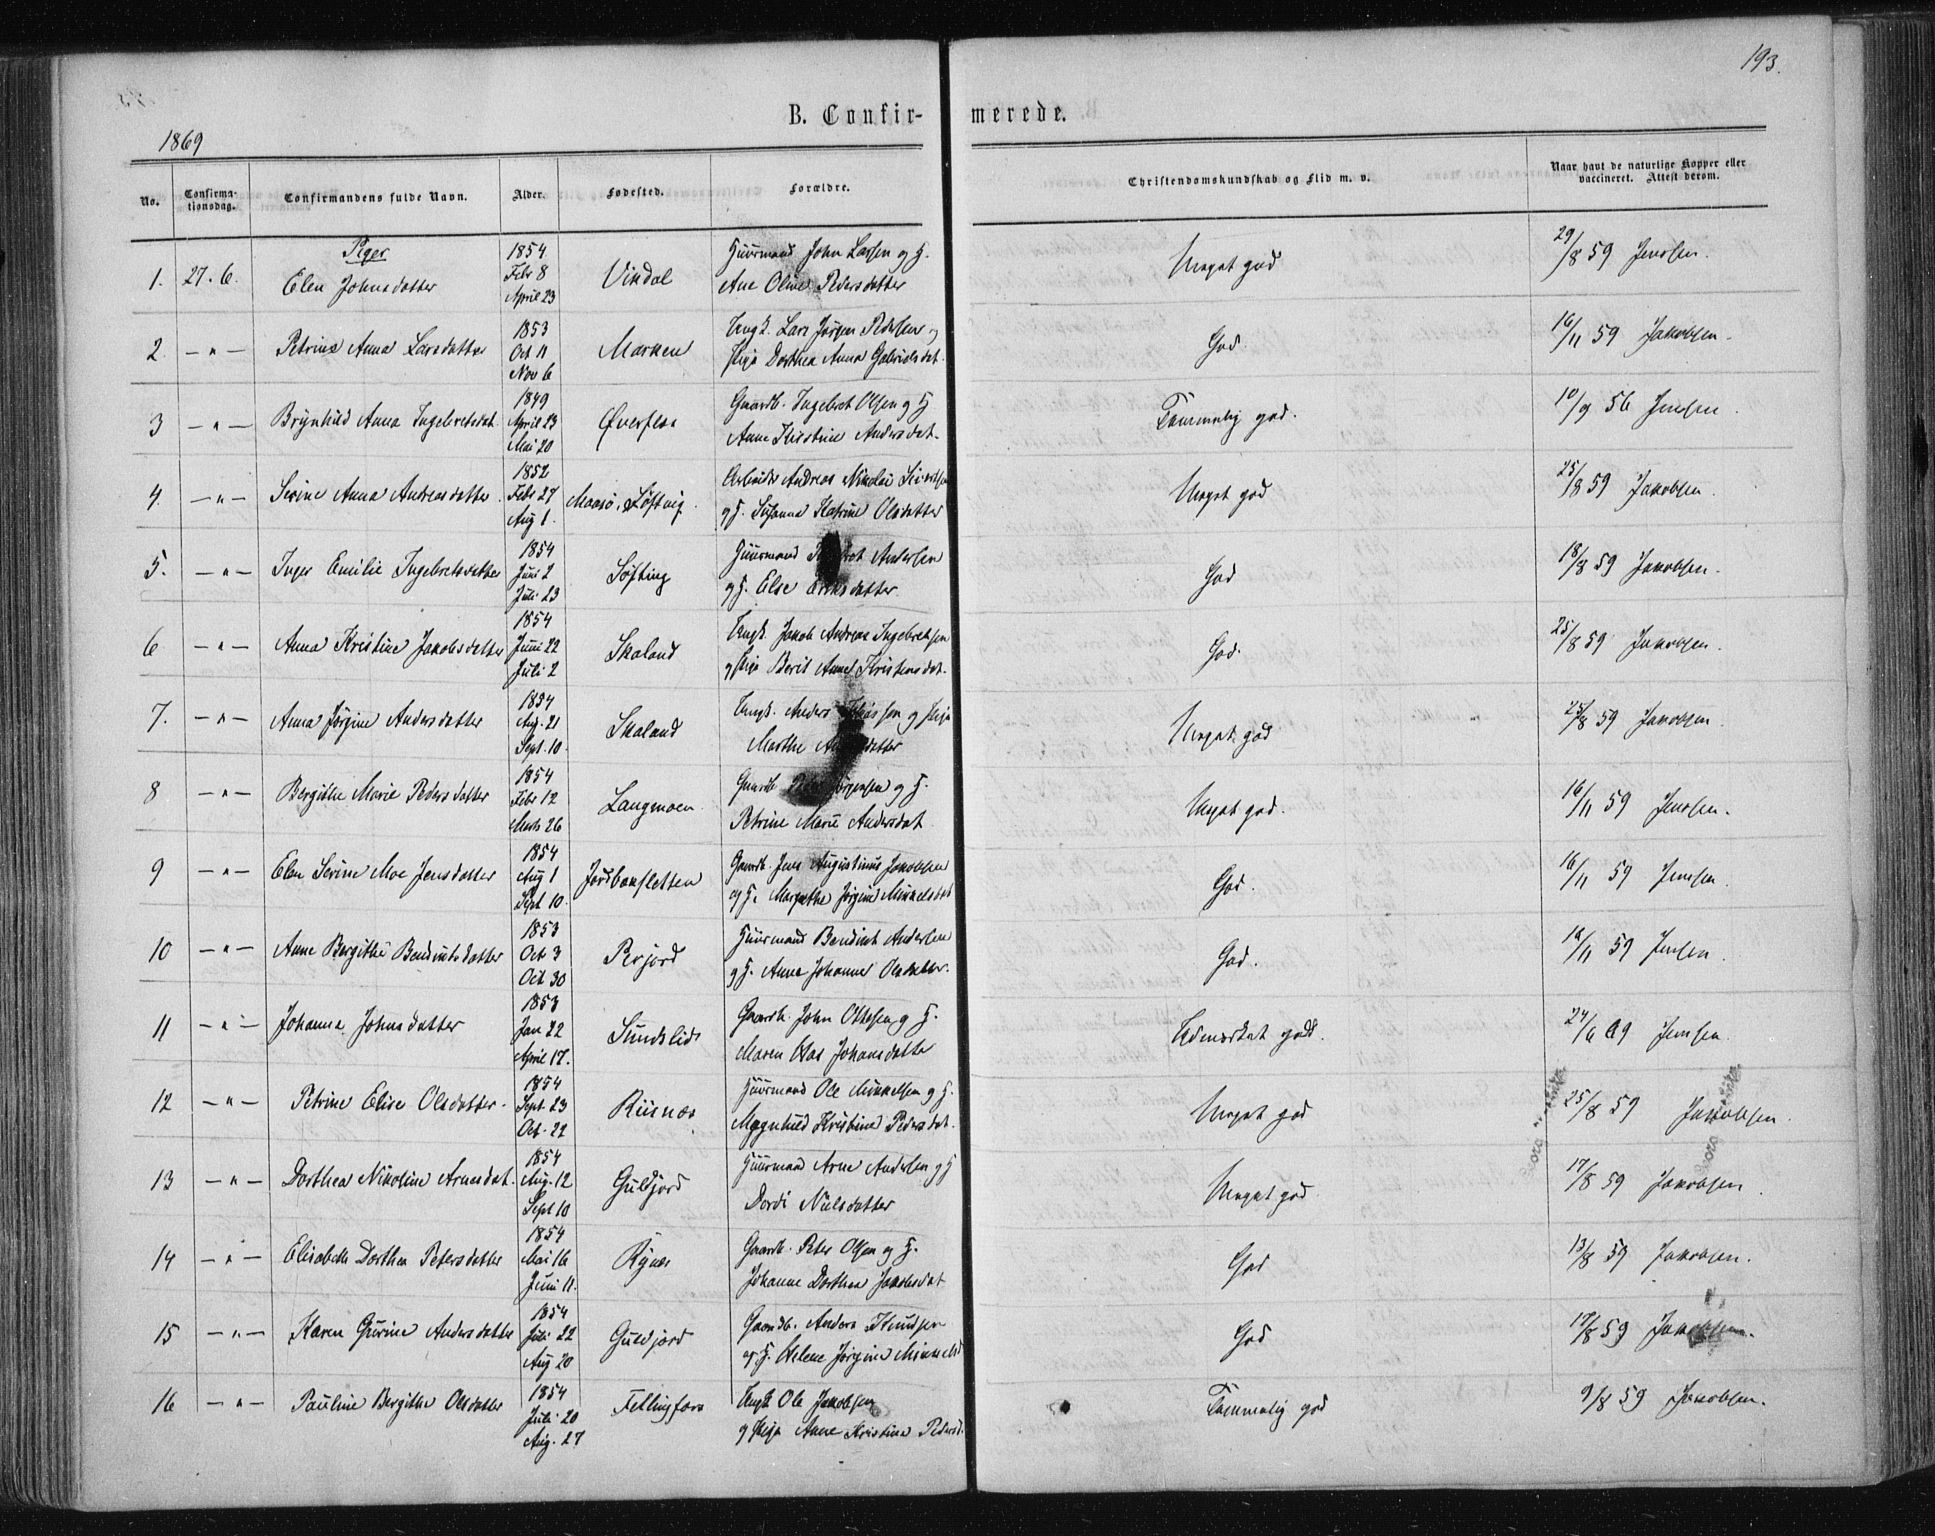 193.
B. Confir- merede.
1869
No. Confirma-tionsdag. Confirmandens fulde Navn. Alder. Fødested. Forældre. Christendomskundskab og Flid m. v. Naar havt de naturlige Kopper eller vaccineret. Attest derom.
Piger 1854 Huusmand John Larsen og H.
1. 27. 6. Elen Johnsdatter Febr 8 Vikdal Meget god 29/8 59 Jensen.
April 23 Ane Oline Pedersdatter
1853 Ungk. Lars Jørgen Pedersen og
2. – " – Petrine Anna Larsdatter Oct 11 Marken God 16/11 59 Jakobsen.
Nov 6 Pige Dorthea Anna Gabrielsdat.
1849 Gaardb. Ingebret Olsen og H
3 – " – Brynhild Anna Ingebretsdat. April 23 Øverfloe Temmelig god. 10/9 56 Jensen.
Mai 20 Anne Kirstine Andersdat.
1852 Arbeider Andreas Nikolai Sivertsen
4. – " – Serine Anna Andreasdatter Febr 27 Maasö, Løftvig. Meget god 25/8 59 Jakobsen.
Aug 1. og H. Susanna Katrine Olsdatter
1854 Huusmand Andersen
5. – " – Inger Emilie Ingebretsdatter Juni 2 Søfting God 18/8 59 Jakobsen.
Juli 23 og H. Else datter
1854 Ungk. Jakob Andreas Ingebretsen
6 – " – Anna Kristine Jakobsdatter Juni 22 Skaland God. 25/8 59 Jakobsen.
Juli 2 og Pige Berit Anne Kristensdat.
1854 Ungk. Anders og Pige
7. – " – Anna Jørgine Andersdatter Aug. 21 Skaland Meget god 25/8 59 Jakobsen.
Sept. 10. Marthe datter
1854 Gaardb. Peder Jørgensen og H.
8 – " – Bergithe Marie Pedersdatter Febr 12 Langmoen Meget god. 16/11 59 Jensen.
Marts 26 Petrine Marie Andersdat.
1854 Gaardb. Jens Augustinus Jakobsen
9 – " – Elen Serine Moe Jensdatter Aug 1 Jordbækfletten God. 16/11 59 Jensen.
Sept 10. og H. Margrethe Jørgine Mikkelsdat
1853 Huusmand Bendikt Andersen
10 – " – Anne Bergithe Bendiktsdatter Oct. 3 Røjord God. 16/11 59 Jensen.
Oct 30 og H. Anne Johanne Olsdatter.
1853 Gaardb. John Ottesen og H.
11 – " – Johanna Johnsdatter Jan 22 Sundslid Udmærket godt. 24/6 69 Jensen.
April 17. Maren Johansdatter
1854 Huusmand Ole Mikkelsen og H.
12 – " – Petrine Elise Olsdatter. Sept. 23 Riisnæs Meget god 25/8 59 Jakobsen.
Oct. 22 Magnhild Kristine Pedersdat.
1854 Huusmand Arne Andersen og H
13 – " – Dorthea Nikoline Arnesdat. Aug. 12 Guldjord Meget god 17/8 59 Jakobsen.
Sept 10 Dordi Nielsdatter
1854 Gaardb. Peter Olsen og H.
14 – " – Elisabeth Dorthea Petersdatter Mai 16 Rynes God 13/8 59 Jakobsen.
Juni 11. Johanne Dorthea Jakobsdat
1854 Gaardb. Anders Knudsen
15 – " – Karen Gurine Andersdatter Juli 22 Guldjord God 17/8 59 Jakobsen.
Aug 20 og H. Helene Jørgine Mikkelsd
1854 Ungk Ole Jakobsen
16 – " – Pauline Bergithe Olsdatter Juli 20 Fellingfors Temmelig god 9/8 59 Jakobsen.
Aug. 27 og Pige Anne Kristina Pedersd.